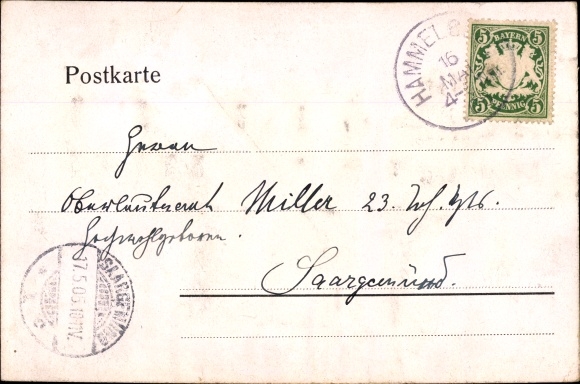 Postkarte
HAMMELB
16
MAI
5 BAYERN 5
5 PFENNIG 5
Herrn
Oberleutnant Müller 23. Inf. Rgts.
Hochwohlgeboren.
Saargemünd.
SAARGEMÜND
17.5.03.